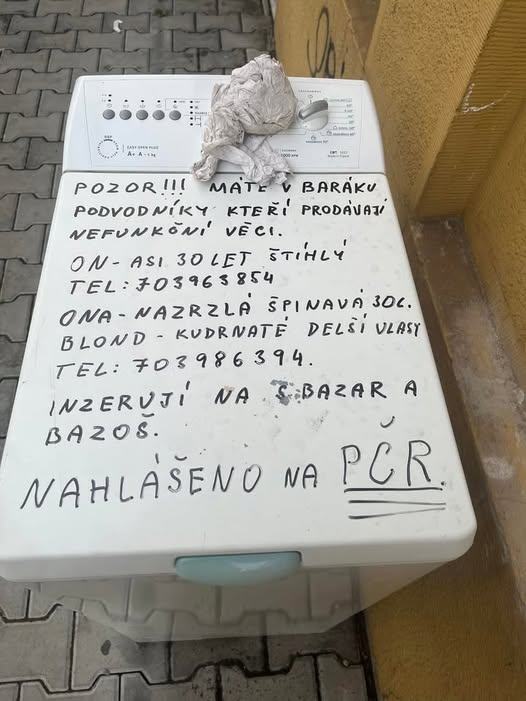 EASY OPEN PLUS
POZOR!!! MÁTE V BARÁKU
PODVODNÍKY KTEŘÍ PRODÁVAJÍ
NEFUNKČNÍ VĚCI.
ON- ASI 30 LET ŠTÍHLÝ
TEL: 703963854
ONA- NAZRZLÁ ŠPINAVÁ 30L.
BLOND - KUDRNATÉ DELŠÍ VLASY
TEL: 703986394.
INZERUJÍ NA S BAZAR A
BAZOŠ.
NAHLÁŠENO NA PČR.